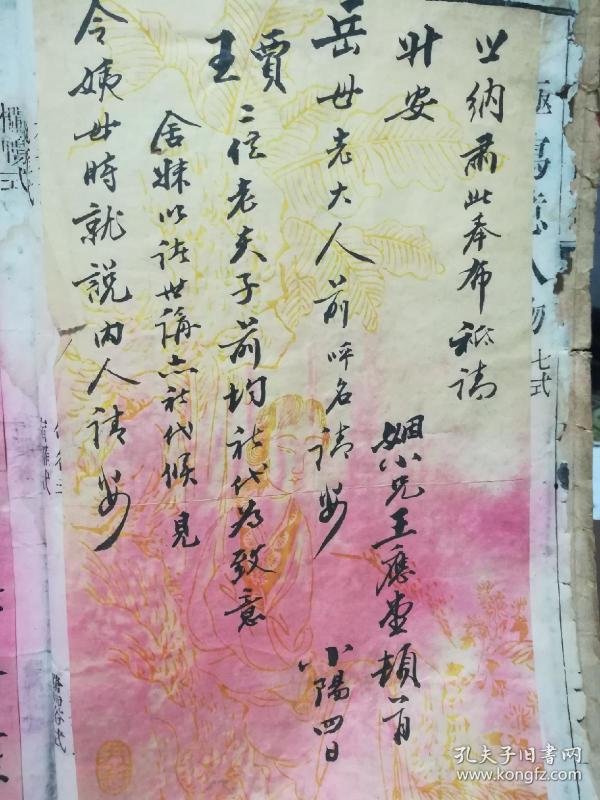 笑納肅此奉布祗請
升安
姻小兄王應奎頓首
岳母老大人前呼名請安
小陽四日
賈
王
二位老夫子前均祈代為致意
舍妹以諸世講亦祈代候見
令姨母時就說内人請安
七式
孔夫子旧书网
www.kongfz.com